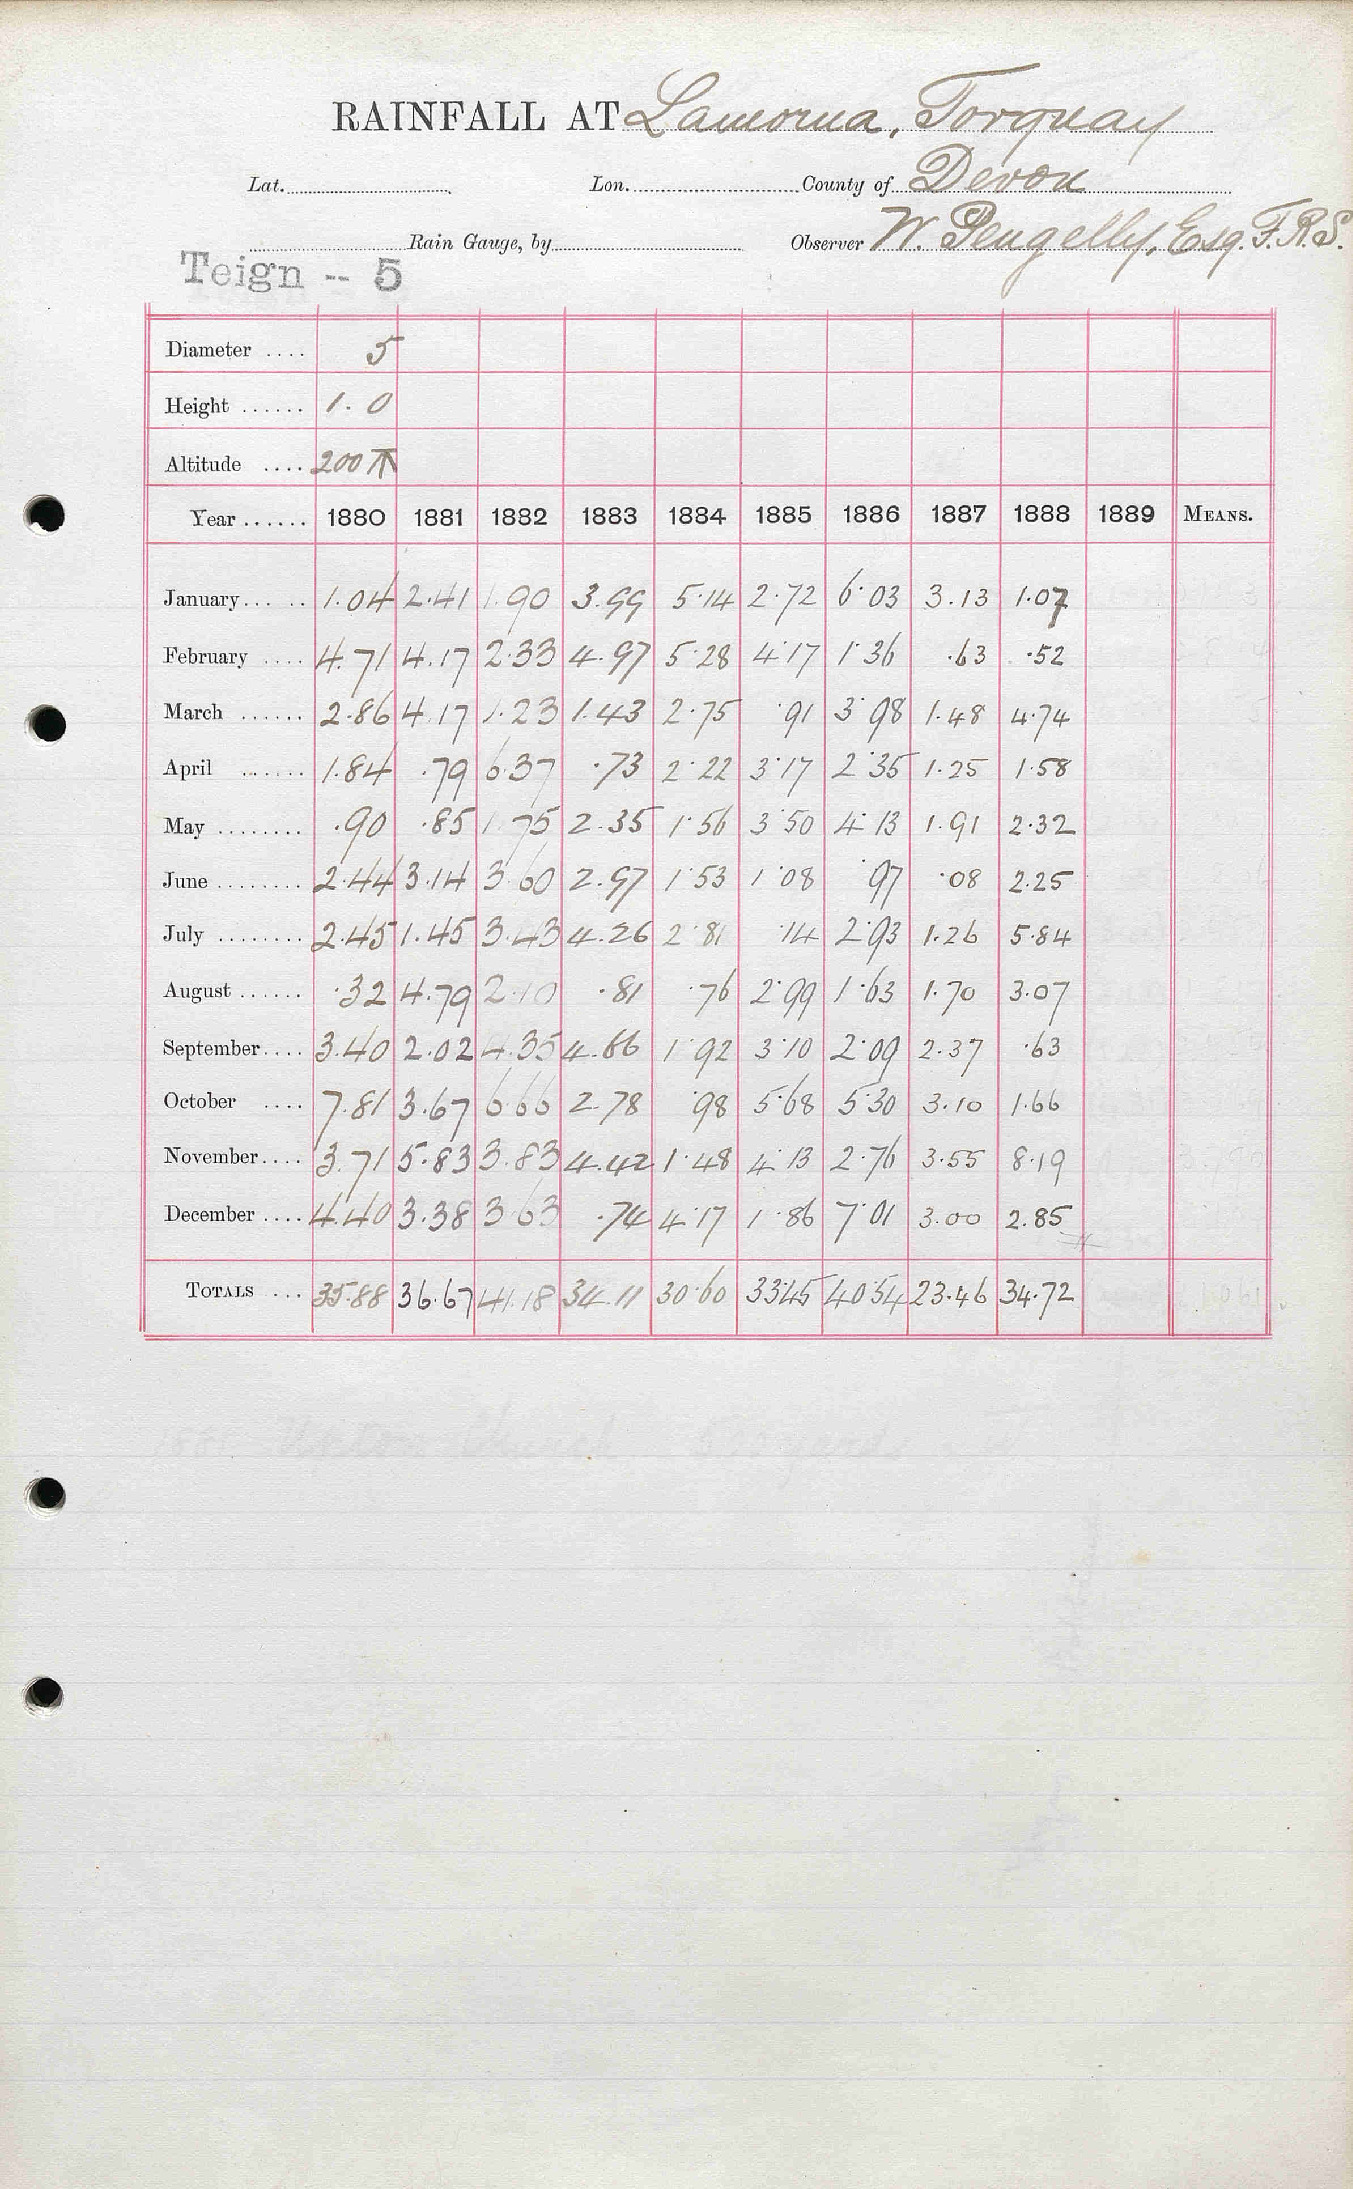 RAINFALL AT Lamorna, Torquay
Lat. Lon. County of Devon
Rain Gauge, by Observer W. Pengelly, Esq. F.R.S.
Teign -- 5
Diameter .... 5
Height ...... 1. 0
Altitude .... 200
Year ...... 1880 1881 1882 1883 1884 1885 1886 1887 1888 1889 MEANS.
January... .. 1.04 2.41 1.90 3.99 5.14 2.72 6.03 3.13 1.07
February .... 4.71 4.17 2.33 4.97 5.28 4.17 1.36 .63 .52
March ...... 2.86 4.17 1.23 1.43 2.75 .91 3.98 1.48 4.74
April ....... 1.84 .79 6.37 .73 2.22 3.17 2.35 1.25 1.58
May ........ .90 .85 1.75 2.35 1.56 3.50 4.13 1.91 2.32
June ........ 2.44 3.14 3.60 2.97 1.53 1.08 .97 .08 2.25
July ........ 2.45 1.45 3.43 4.26 2.81 .14 2.93 1.26 5.84
August ...... .32 4.79 2.10 .81 .76 2.99 1.63 1.70 3.07
September.... 3.40 2.02 4.35 4.66 1.92 3.10 2.09 2.37 .63
October .... 7.81 3.67 6.66 2.78 .98 5.68 5.30 3.10 1.66
November.... 3.71 5.83 3.83 4.42 1.48 4.13 2.76 3.55 8.19
December .... 4.40 3.38 3.63 .74 4.17 1.86 7.01 3.00 2.85
TOTALS ... 35.88 36.67 41.18 34.11 30.60 33.45 40.54 23.46 34.72